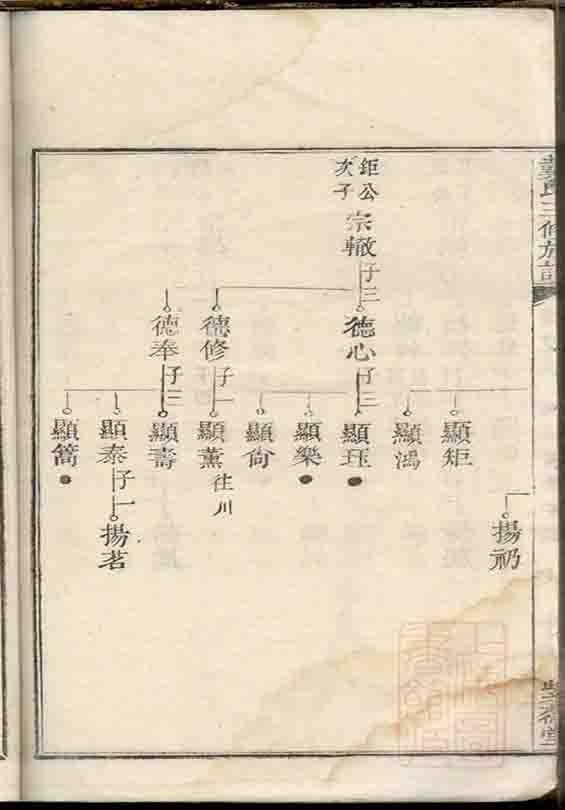 鉅公
次子
宗轍
子三
德心
子三
德修
子一
德奉
子三
顯矩
顯鴻
顯珏
顯樂
顯尙
顯薰
往川
顯壽
顯泰
子一
顯篙
揚礽
揚茗